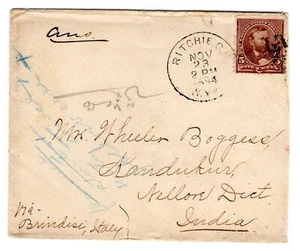 Ans.
RITCHIE C.
NOV
23
2 PM
W.VA
Mr. Wheeler Boggess
Kandukur,
Nellore Dist.
India.
Via
Brindisi, Italy